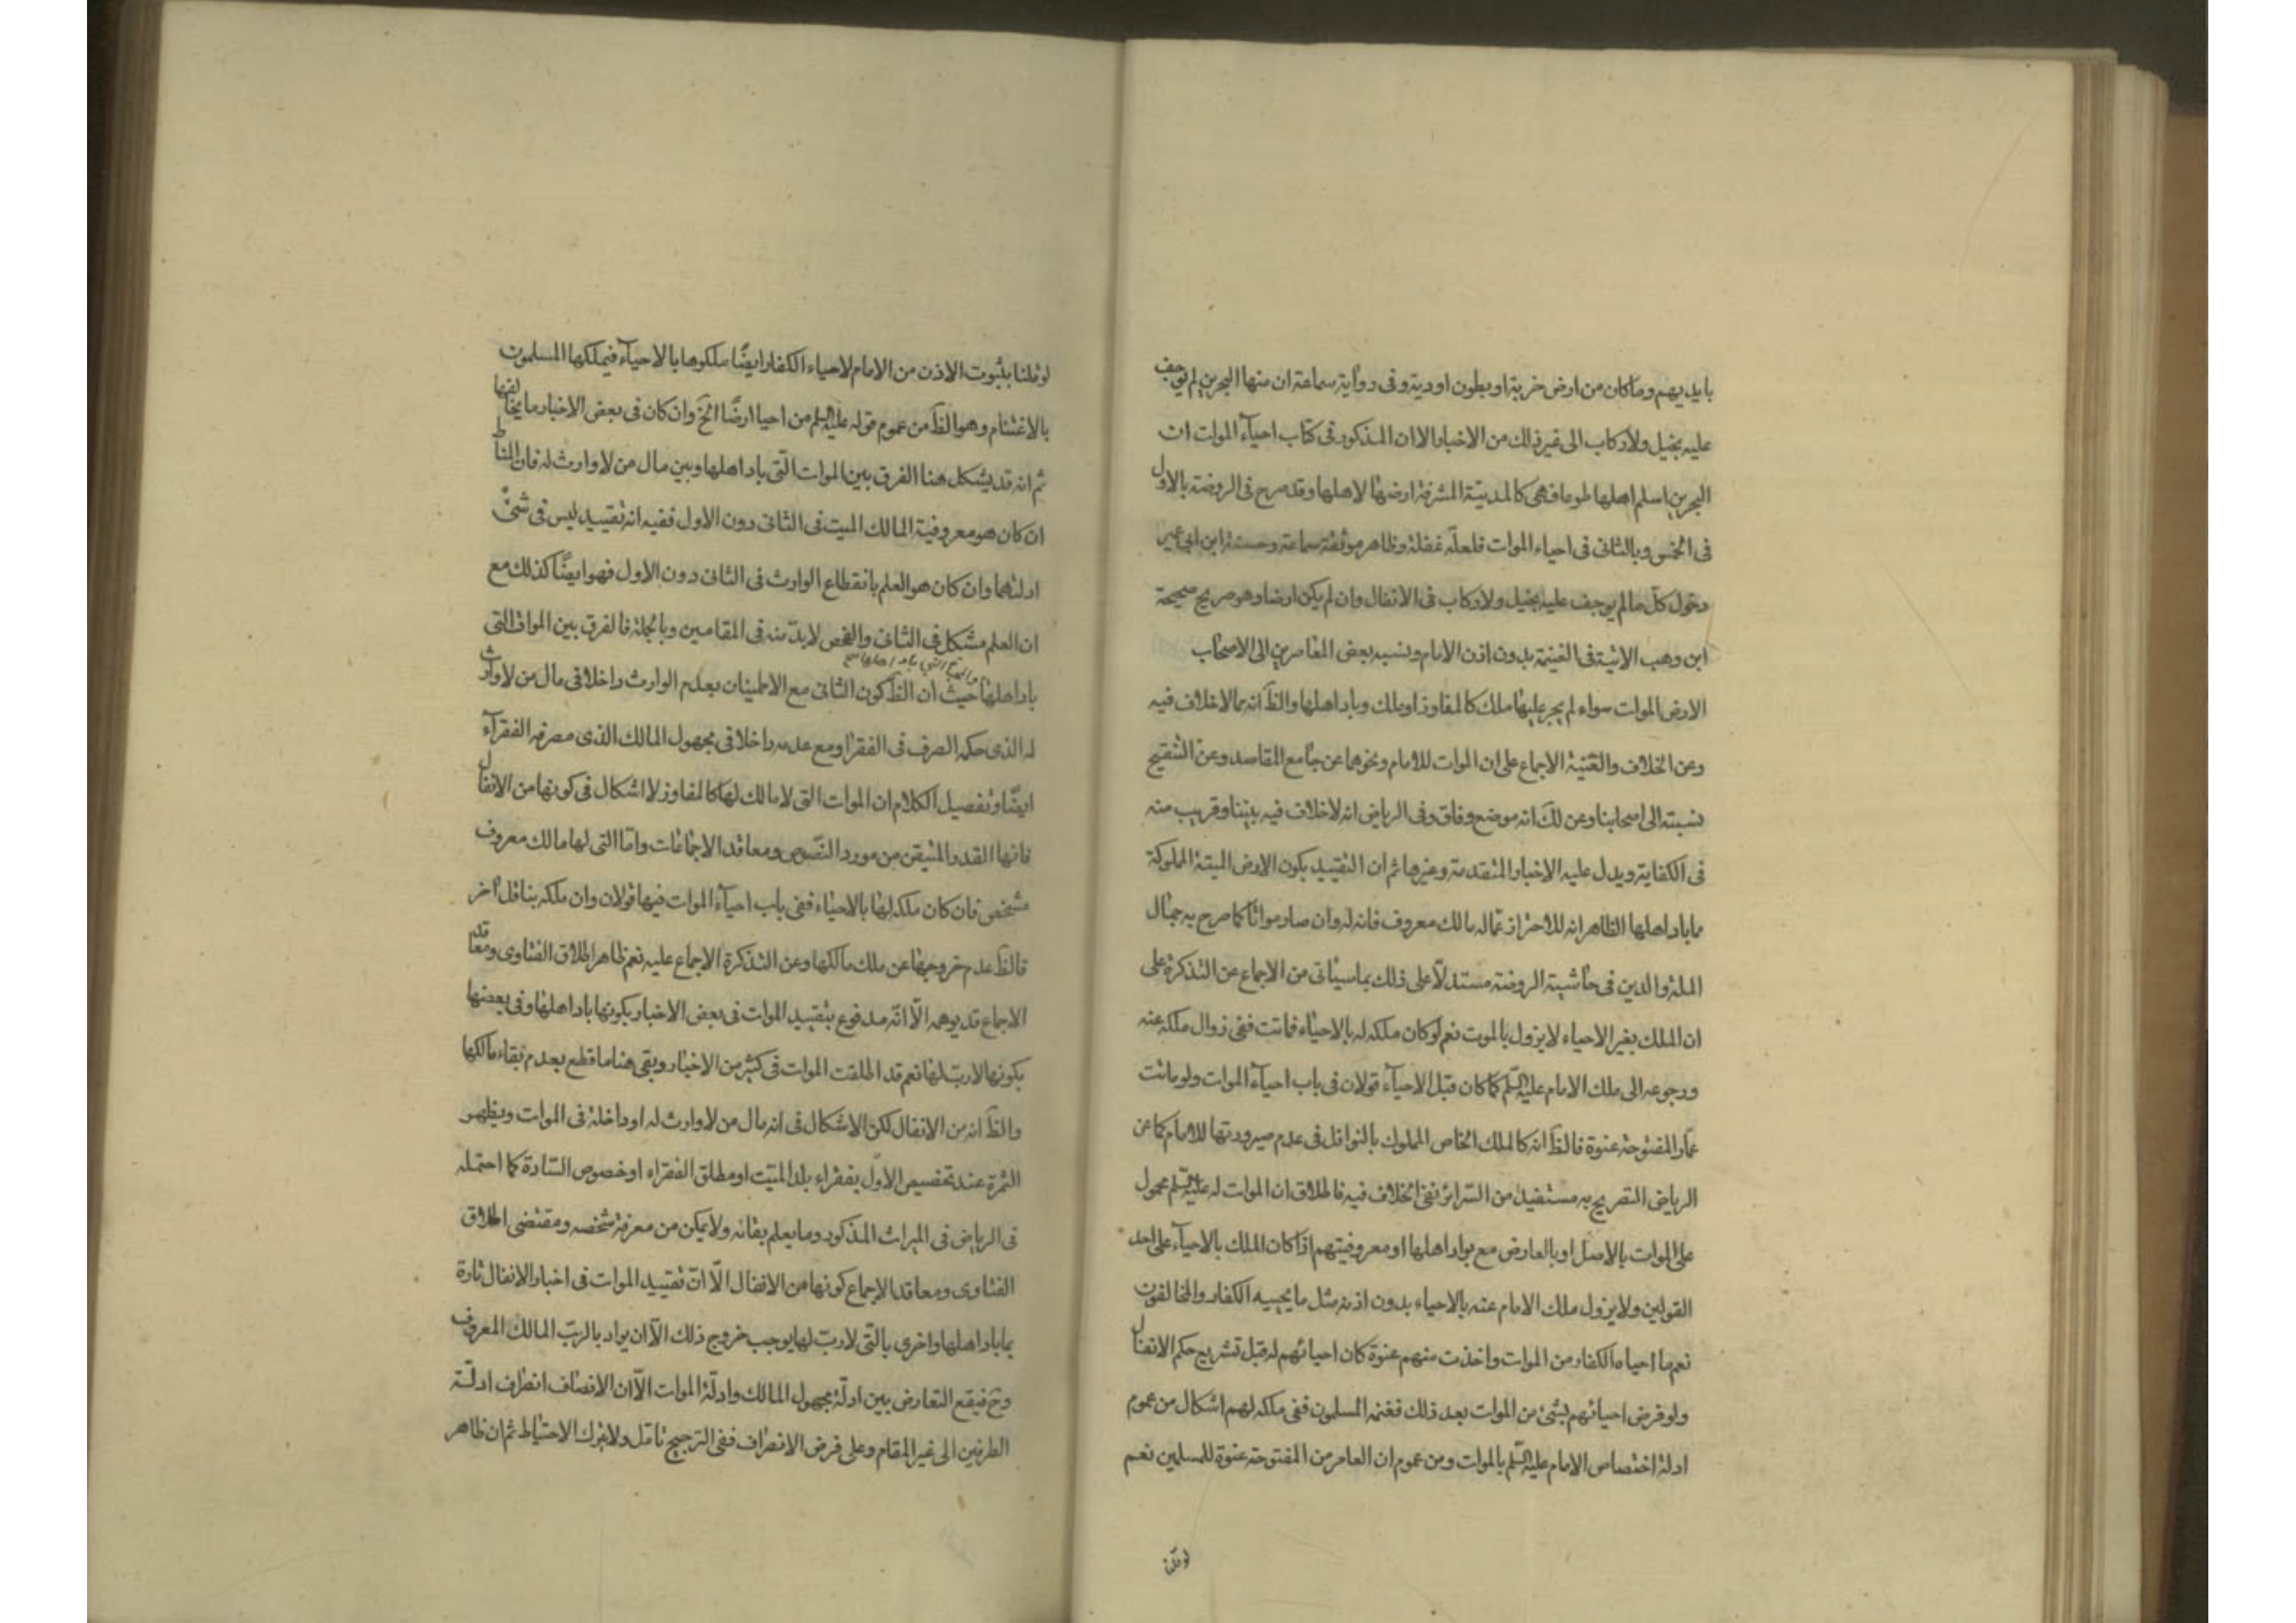 بايديهم وما كان من ارض خربة او بطون اودية وفى رواية سماعة ان منها البحرين لم يوجف
عليه بخيل ولا ركاب الى غير ذلك من الاخبار الا ان المذكور فى كتاب احياء الموات ان
البحرين اسلم اهلها طوعا فهى كالمدينة المشرفة ارضها لاهلها وقد صرح فى الروضة بالاول
فى الخمس وبالثانى فى احياء الموات فلعله غفلة وظاهر موثقة سماعة وحسنة ابن ابى عمير
دخول كل ما لم يوجف عليه بخيل ولا ركاب فى الانفال وان لم يكن ارضا وهو صريح صحيحة
ابن وهب الاتية فى الغنيمة بدون اذن الامام ونسبه بعض المعاصرين الى الاصحاب
الارض الموات سواء لم يجر عليها ملك كالمفاوز او ملك وباد اهلها والظ انه مما لاخلاف فيه
وعن الخلاف والغنية الاجماع على ان الموات للامام ونحوهما عن جامع المقاصد وعن التنقيح
نسبته الى اصحابنا وعن لك انه موضع وفاق وفى الرياض انه لاخلاف فيه بيننا وقريب منه
فى الكفاية ويدل عليه الاخبار المتقدمة وغيرها ثم ان التقييد بكون الارض الميتة المملوكة
مما باد اهلها الظاهر انه للاحتراز عما له مالك معروف فانه له وان صار مواتا كما صرح به جمال
الملة والدين فى حاشية الروضة مستدلا على ذلك بما سياتى من الاجماع عن التذكرة على
ان الملك بغير الاحياء لا يزول بالموت نعم لو كان ملكه له بالاحياء فماتت ففى زوال ملكه عنه
ورجوعه الى ملك الامام عليه السلم كما كان قبل الاحياء قولان فى باب احياء الموات ولو ماتت
عمار المفتوحة عنوة فالظ انه كالملك الخاص المملوك بالنواقل فى عدم صيرورتها للامام كما عن
الرياض التصريح به مستفيد من السرائر نفى الخلاف فيه فاطلاق ان الموات له عليه السلم محمول
على الموات بالاصل او بالعارض مع بواد اهلها او معروفيتهم اذا كان الملك بالاحياء على احد
القولين ولا يزول ملك الامام عنه بالاحياء بدون اذنه مثل ما يحييه الكفار والمخالفون
نعم ما احياه الكفار من الموات واخذت منهم عنوة كان احيائهم له قبل تشريع حكم الانفال
ولو فرض احيائهم لشئ من الموات بعد ذلك فغنمه المسلمون ففى ملكه لهم اشكال من عموم
ادلة اختصاص الامام عليه السلم بالموات ومن عموم ان العامر من المفتوحة عنوة للمسلمين نعم
لو قلنا
لو قلنا بثبوت الاذن من الامام لاحياء الكفار ايضا ملكوها بالاحياء فيملكها المسلمون
بالاغتنام وهو الظ من عموم قوله عليه السلم من احيا ارضا الخ وان كان فى بعض الاخبار ما يخالفها
ثم انه قد يشكل هنا الفرق بين الموات التى باد اهلها وبين مال من لا وارث له فان المناط
ان كان هو معروفية المالك الميت فى الثانى دون الاول ففيه انه تقييد ليس فى شئ
ادلتهما وان كان هو العلم بانقطاع الوارث فى الثانى دون الاول فهو ايضا كذلك مع
ان العلم مشكل فى الثانى والفحص لا بد منه فى المقامين وبالجملة فالفرق بين الموات التى
التى باد اهلها
باد اهلها حيث ان الظ كون الثانى مع الاطمينان بعدم الوارث داخلا فى مال من لا وارث
له الذى حكمه الصرف فى الفقرا ومع عدمه داخلا فى مجهول المالك الذى مصرفه الفقراء
ايضا وتفصيل الكلام ان الموات التى لا مالك لها كالمفاوز لا اشكال فى كونها من الانفال
فانها القدر المتيقن من مورد النصوص ومعاقد الاجماعات واما التى لها مالك معروف
مشخص فان كان ملكه لها بالاحياء ففى باب احياء الموات فيها قولان وان ملكه بناقل اخر
فالظ عدم خروجها عن ملك مالكها وعن التذكرة الاجماع عليه نعم ظاهر اطلاق الفتاوى ومعاقد
الاجماع قد يوهمه الا انه مدفوع بتقييد الموات فى بعض الاخبار بكونها باد اهلها وفى بعضها
بكونها لارب لها نعم قد اطلقت الموات فى كثير من الاخبار وبقى هنا ما قطع بعدم بقاء مالكها
والظ انه من الانفال لكن الاشكال فى انه مال من لا وارث له او داخلة فى الموات ويظهر
الثمرة عند تخصيص الاول بفقراء بلد الميت او مطلق الفقراء او خصوص السادة كما احتمله
فى الرياض فى الميراث المذكور وما يعلم بقائه ولا يمكن من معرفة شخصه ومقتضى اطلاق
الفتاوى ومعاقد الاجماع كونها من الانفال الا ان تقييد الموات فى اخبار الانفال تارة
بما باد اهلها واخرى بالتى لارب لها يوجب خروج ذلك الا ان يراد بالرب المالك المعروف
وح فيقع التعارض بين ادلة مجهول المالك وادلة الموات الا ان الانصاف انصراف ادلة
الطرفين الى غير المقام وعلى فرض الانصراف ففى الترجيح تامل ولا يترك الاحتياط ثم ان ظاهر